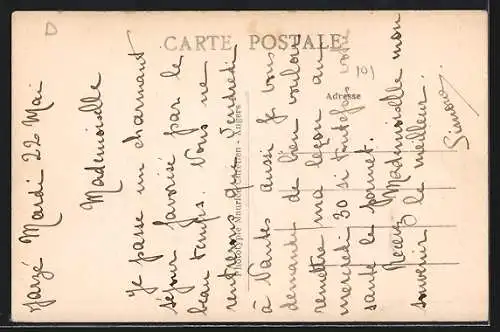 CARTE POSTALE
Adresse
101
D
Phototype Maurice Chrétien - Angers
Jarzé Mardi 22 Mai
Mademoiselle
Je passe un charmant
séjour favorisé par le
beau temps. Nous ne
rentrerons que Vendredi
à Nantes aussi je vous
demande de bien vouloir
remettre ma leçon au
mercredi 30 si toutefois votre
santé le permet.
Recevez Mademoiselle mon
souvenir le meilleur.
Simone